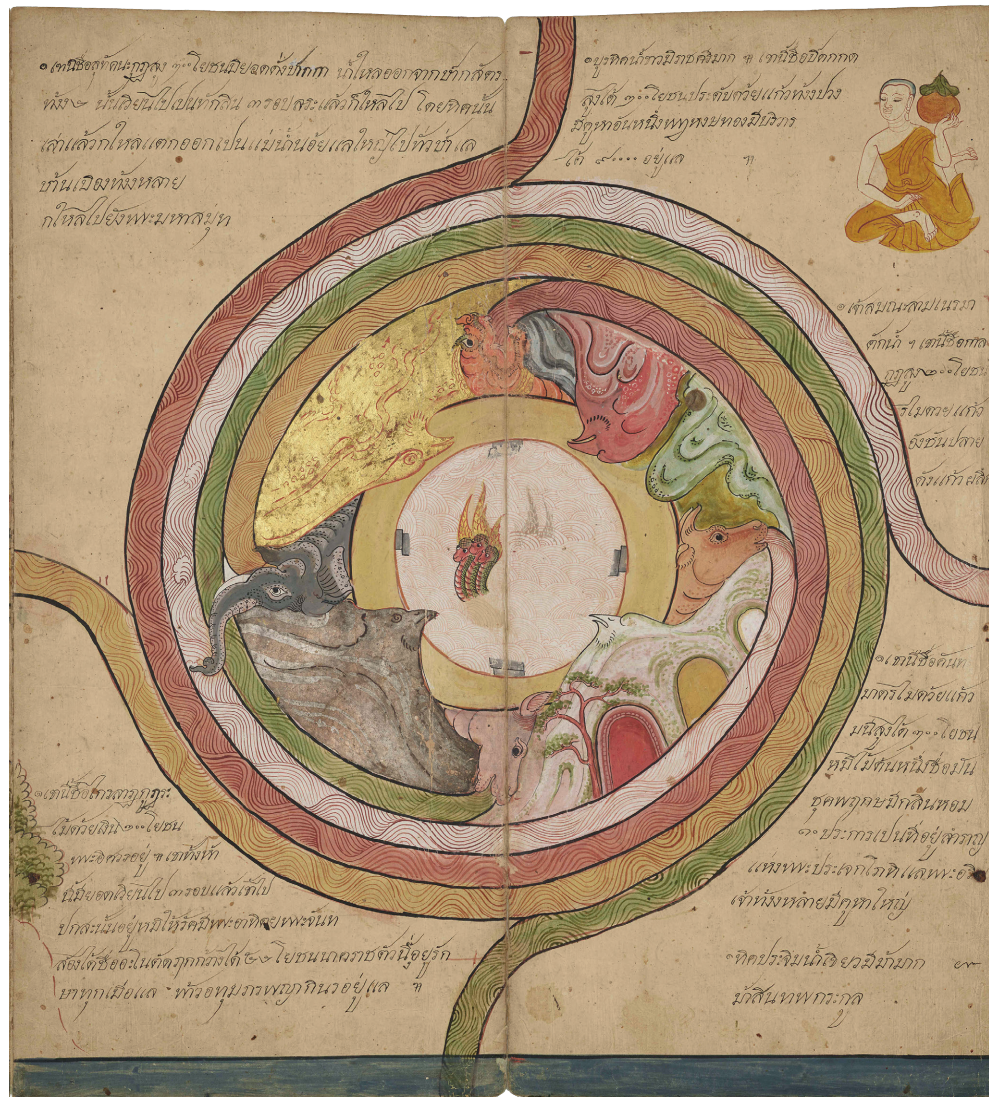 ๏ เขานีชื่อสุทัศนะกูฏสูง ๒๐๐ โยชนมียอดดั่งปากกา น้ำไหลออกจากปากสัตว
ทัง ๔ นั้นเวียนไปเปนทักสิน ๓ รอบสระแล้วก็ไหลไป โดยทิศนั้น
เล่าแล้วกไหลแตกออกเปนแม่น้ำน้อยแลใหญ่ไปทัวป่าแล
บ้านเมืองทังหลาย
กไหลไปยังพระมหาสมุท
๏ บูรทิศน้ำขาวมีราชสีห์มาก ฯ เขานีชื่อปีตกกด
สูงได้ ๒๐๐ โยชนประดับด้วยแก้วทังปวง
มีคูหาอันหนึ่งพญาหงษทองมีบริวาร
ได้ ๙๐๐๐๐ อยู่แล ฯ
๏ เจ้าสมณะสามเนรมา
ตักน้ำ ฯ เขานีชื่อกาล
กูฏสูง ๒๐๐ โยชน
ด้วยแก้ว
๏ เขานีชื่อคันท
มาตรไมด้วยแก้ว
มนีสูงได้ ๒๐๐ โยชน
หมีไม้ต้นหนึ่งชื่อมัน
ชุคพฤกษมีกลินหอม
๑๐ ประการเปนที่อยู่สำราญ
แห่งพระประเจกโภทิแลพระอริ
เจ้าทังหลายมีคูหาใหญ่
๏ ทิศประจิมน้ำเขียวมีม้ามาก
ม้าสินทพกระกูล
๏ เขานีชื่อไกรลาฏกูฏะ
ไปด้วยเงิน ๒๐๐ โยชน
พระอิศวรอยู่ ฯ เขาทังห้า
นีมียอดเวียนไป ๓ รอบแล้วเข้าไป
ปกสะนั้นอยู่หมีให้รัศมีพระอาทิตยพระจันท
ส่องได้ชื่ออะโนตัด โยชนนาคราชตัวนี้อยู่รัก
ษาทุกเมื่อแล อยู่แล ฯ